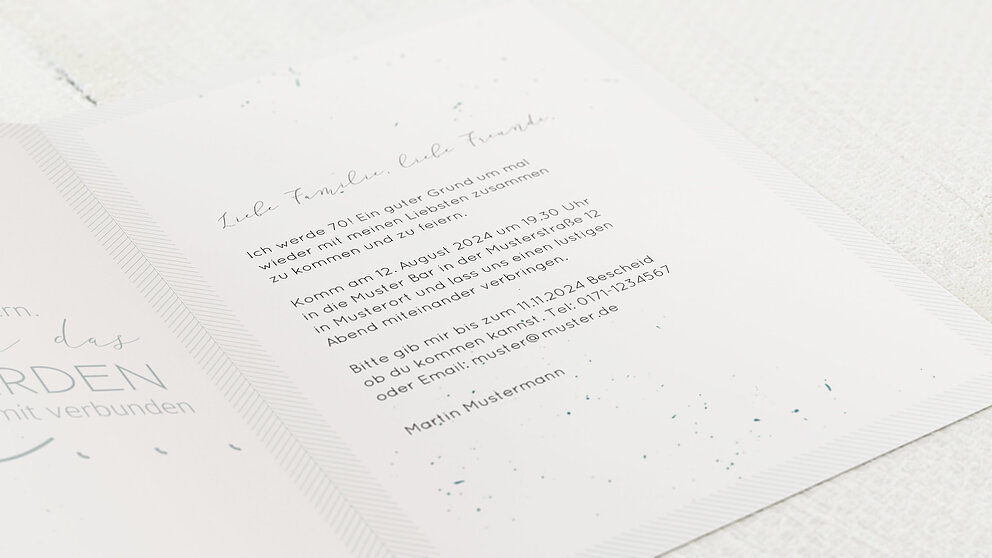 ern.
das
RDEN
mit verbunden
Liebe Familie, liebe Freunde,
Ich werde 70! Ein guter Grund um mal
wieder mit meinen Liebsten zusammen
zu kommen und zu feiern.
Komm am 12. August 2024 um 19.30 Uhr
in die Muster Bar in der Musterstraße 12
in Musterort und lass uns einen lustigen
Abend miteinander verbringen.
Bitte gib mir bis zum 11.11.2024 Bescheid
ob du kommen kannst. Tel: 0171-1234567
oder Email: muster@muster.de
Martin Mustermann